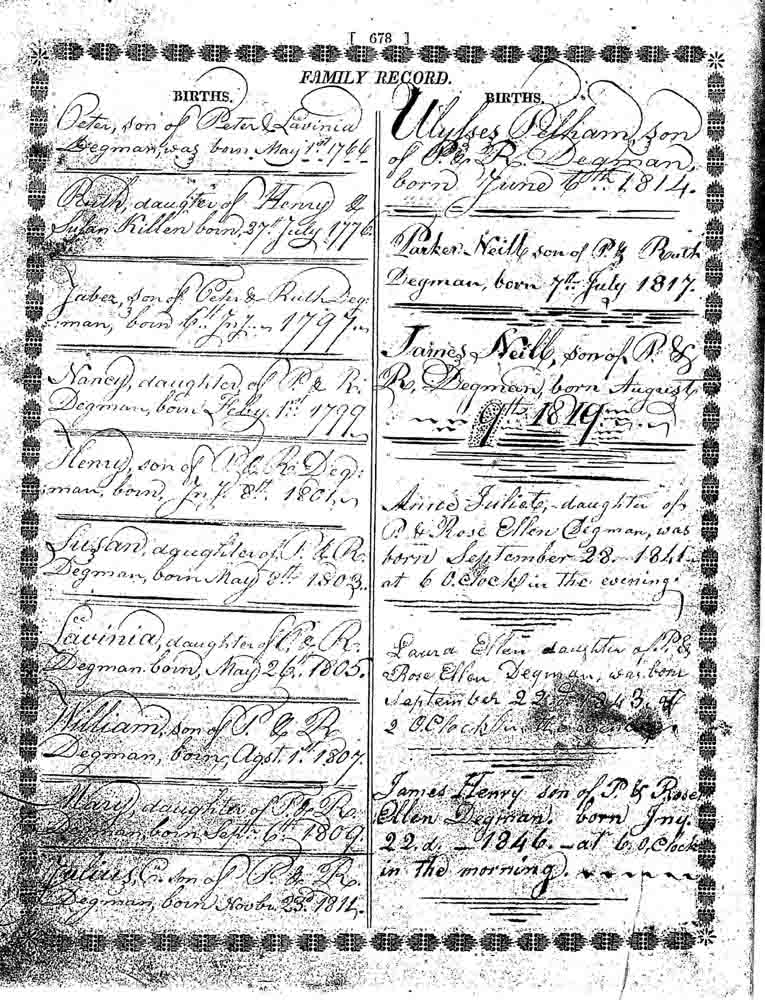 [ 678 ]
FAMILY RECORD.
BIRTHS.
Peter, son of Peter & Lavinia
Degman, was born May 1st 1766
Ruth, daugter of Henry &
Susan Killen born, 27th July 1776.
Jabez, son of Peter & Ruth Deg:
:man, born 6th Jny. 1797.
Nancy, daughter of P. & R.
Degman, born Feby. 1st 1799
Henry, son of P. & R. Deg:
:man, born, Jny. 8th 1801.
Susan, daughter of P. & R.
Degman, born May 8th 1803.
Lavinia, daughter of P. & R.
Degman born, May 26th 1805.
William, son of P. & R.
Degman, born, Agst. 1st 1807.
Mary, daughter of P. & R.
Degman, born Sept. 6th 1809
Julius, son of P. & R.
Degman, born Novbr. 23d
BIRTHS.
Ulysses Pelham, son
of P. & R. Degman,
born June 6th 1814.
Parker Neill son of P. & Ruth
Degman, born 7th July 1817.
James Neill, son of P. &
R. Degman, born August
9th 1819
Anne Juliet, daughter of
P. & Rose Ellen Degman, was
born September 28 - 1841 -
at 6 O.Clock in the evening.
Laura Ellen daughter of P. &
Rose Ellen Degman, was born
September 22 1843, at
2 O.Clock in the
James Henry son of P. & Rose
Ellen Degman. born Jny.
22.d. - 1846. - at 6 O.Clock
in the morning.